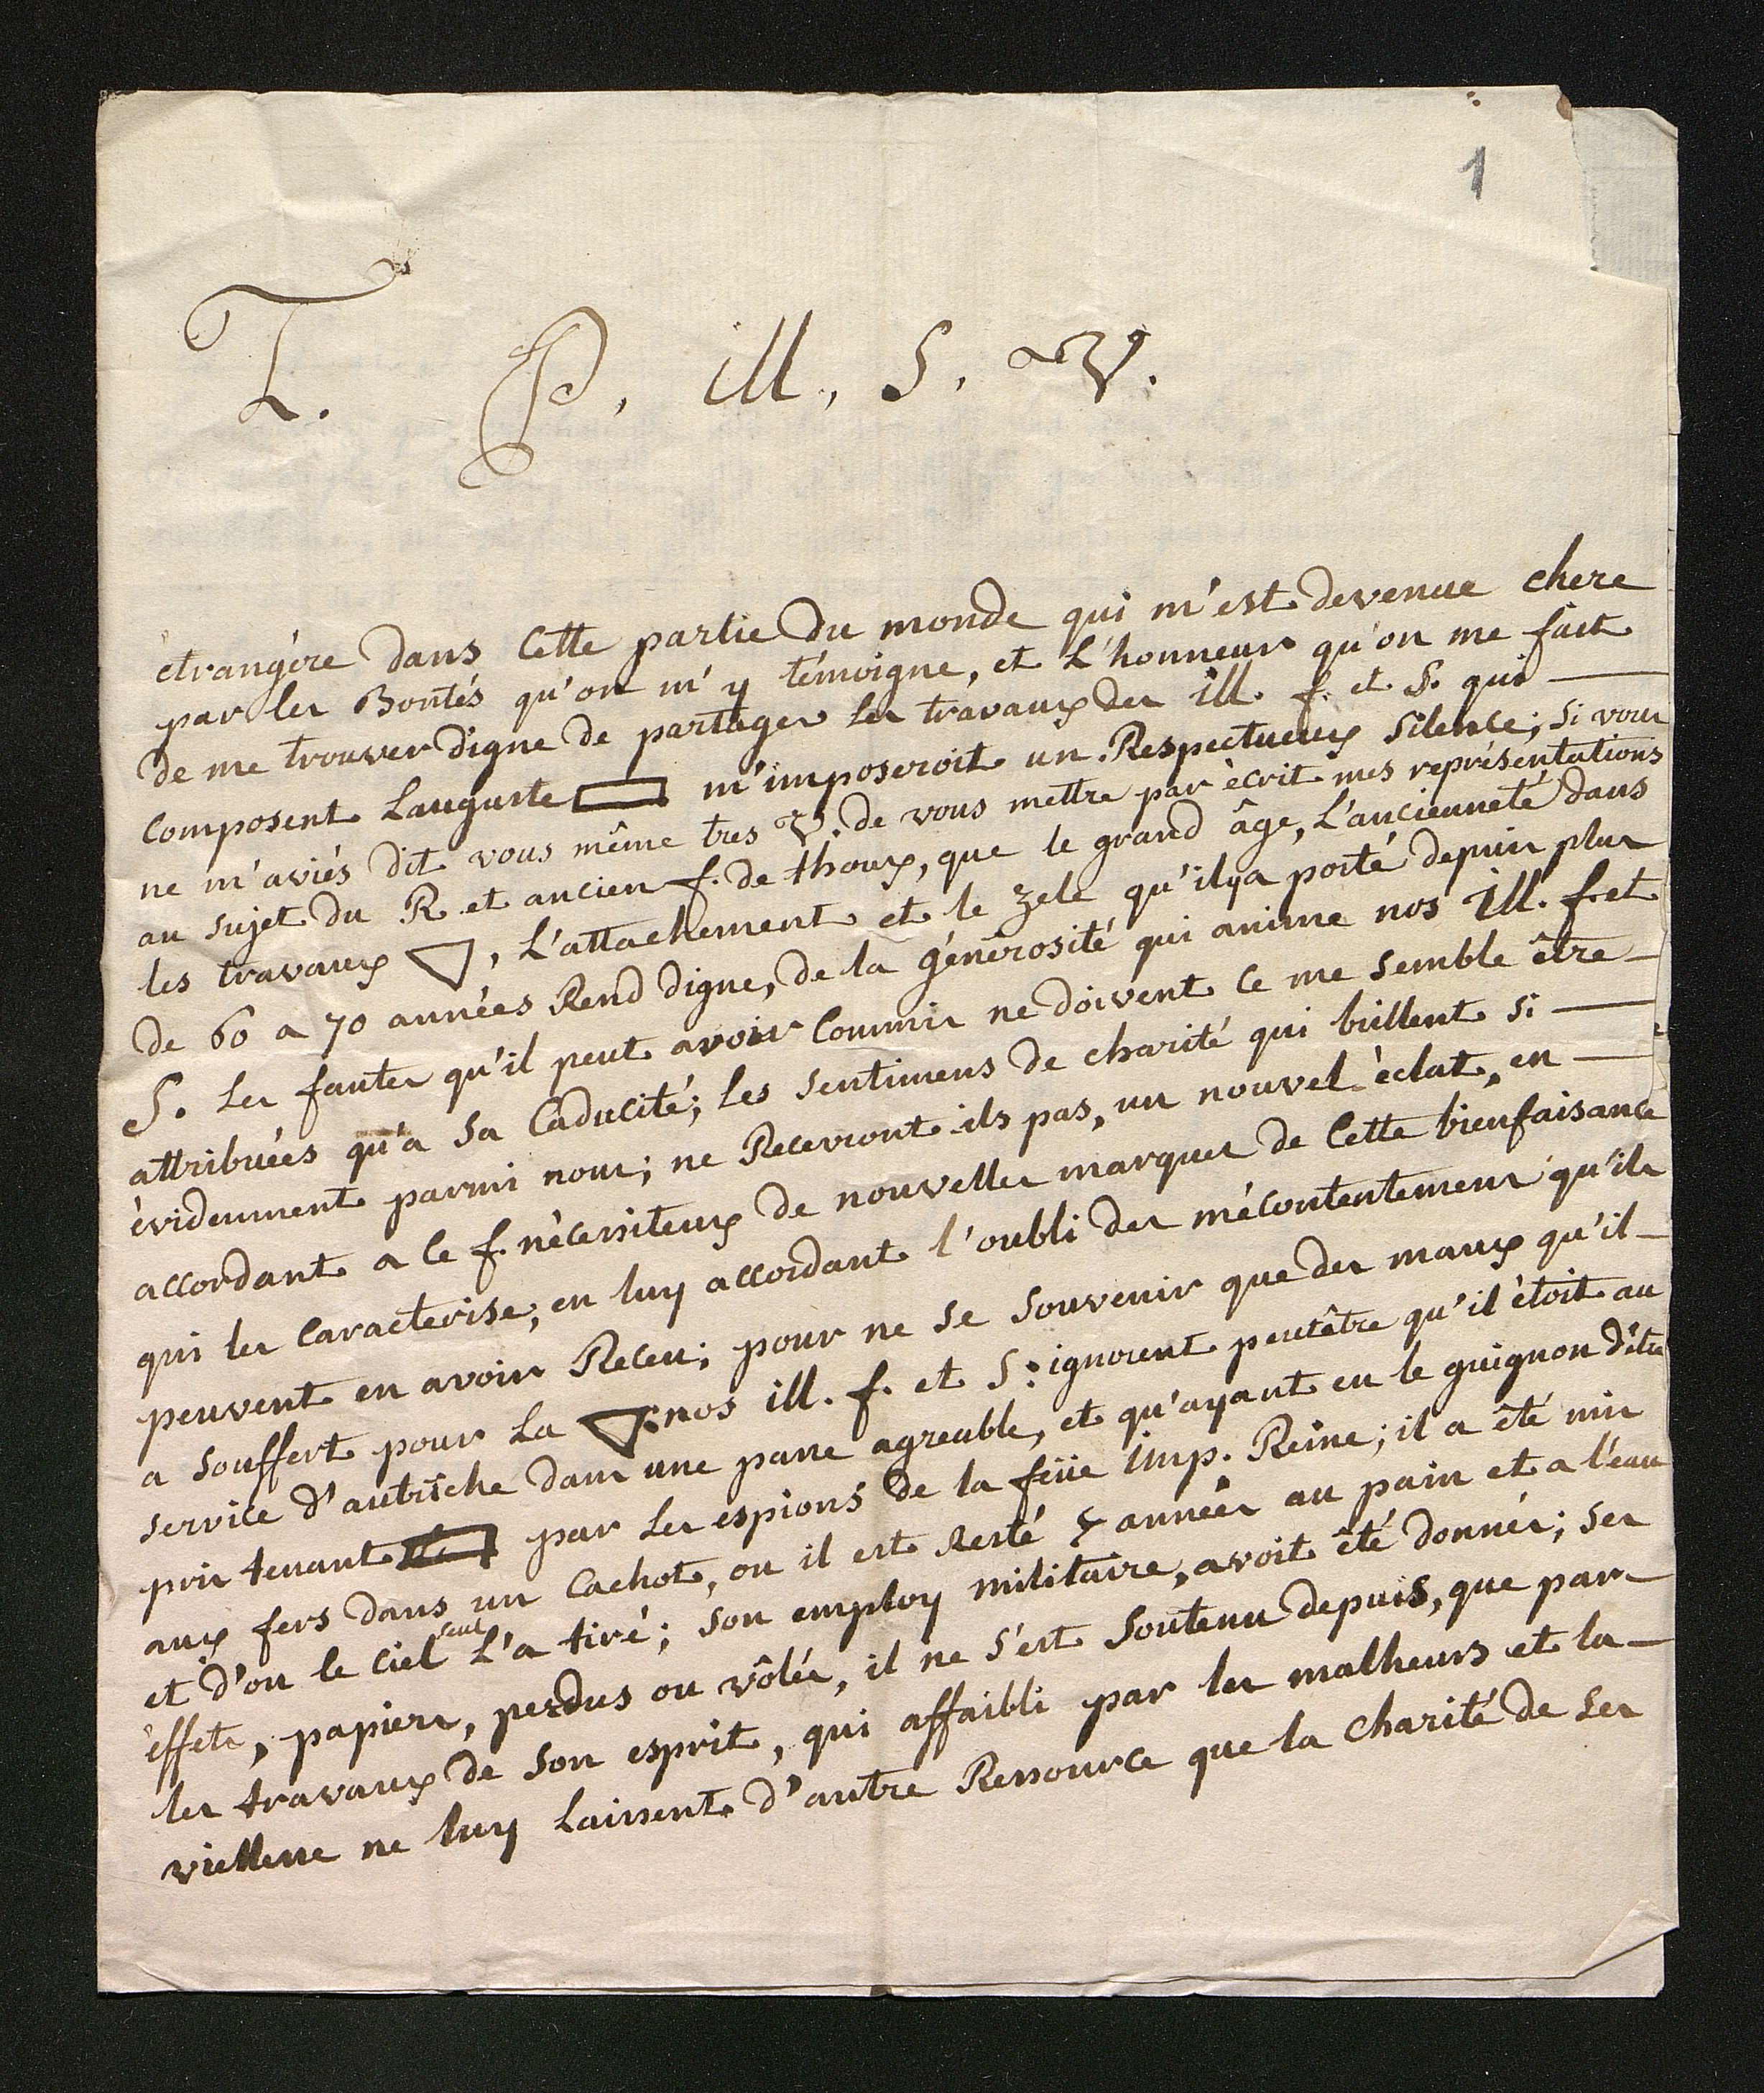 1
T. P. ill. S. V.
ètrangére dans Cette partie Du monde qui m'est devenue chere
par les Bontés qu'on m'y témoigne, et L'honneur qu'on me fait
De me trouver digne de partager les travaux des ill. f. et S. qui
composent Lauguste ▭ m'imposeroit un Respectueux Silence; Si vous
ne m'aviés dit vous même tres V. de vous mettre par ècrit mes représentations
au sujet du R. et ancien f. de thoux, que le grand âge, L'ancienneté dans
les travaux ▽, L'attachement et le zele qu'il y a porté depuis plus
de 60 a 70 années Rend digne, de la générosité qui anime nos ill. f. et
S. Les fautes qu'il peut avoir Commis ne doivent ce me semble être
attribuées qu'a Sa Caducité; les Sentimens de charité qui brillent si
èvidemment parmi nous; ne Recevront-ils pas, un nouvel èclat, en
accordant a Ce f. nècessiteux de nouvelles marques de Cette bienfaisance
qui les Caracterise, en luy accordant l'oubli des mécontentemens qu'ils
peuvent en avoir Receu; pour ne se Souvenir que des maux qu'il
a Souffert pour La ▽. nos ill. f. et S: ignorent peutêtre qu'il ètoit au
service d'autriche dans une passe agreable, et qu'ayant eu le guignon d'être
pris tenant ▭ par Les espions de la feüe imp. Reine; il a été mis
aux fers dans un Cachot, ou il est Resté années au pain et a l'eau
et d'ou le Ciel seul L'a tiré; Son employ militaire, avoit été donnés; Ses
èffets, papiers, perdus ou vôlés, il ne s'est Soutenu depuis, que par
les travaux de Son esprit, qui affaibli par les malheurs et la
viellesse ne luy Laissent d'autre Ressource que la Charité de Ses